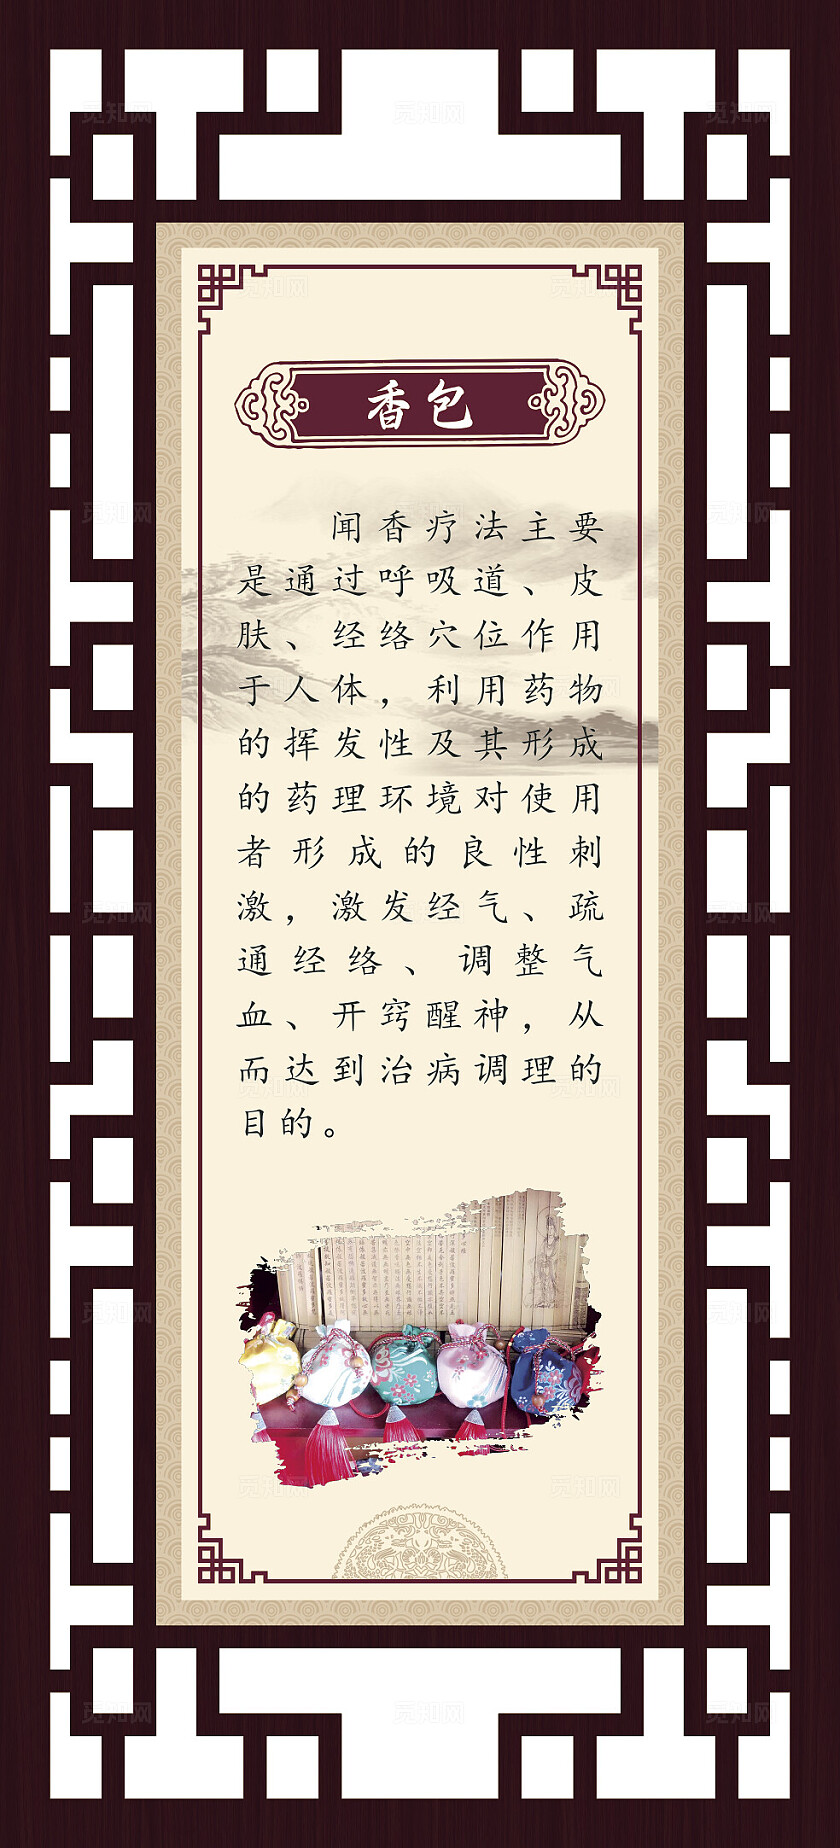 香包
闻香疗法主要
是通过呼吸道、皮
肤、经络穴位作用
于人体，利用药物
的挥发性及其形成
的药理环境对使用
者形成的良性刺
激，激发经气、疏
通经络、调整气
血、开窍醒神，从
而达到治病调理的
目的。
觅知网